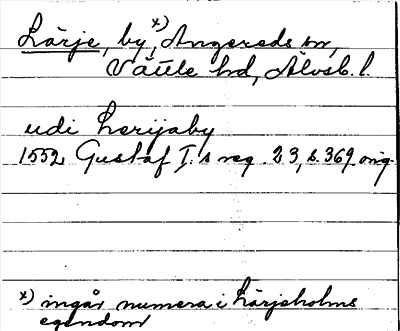 Lärje, by,*) Angereds sn,
Vättle hd, Älvsb. l.
udi Lerijaby
1552 Gustaf I:s reg. 23, s. 369 orig.
*) ingår numera i Lärjeholms
egendom